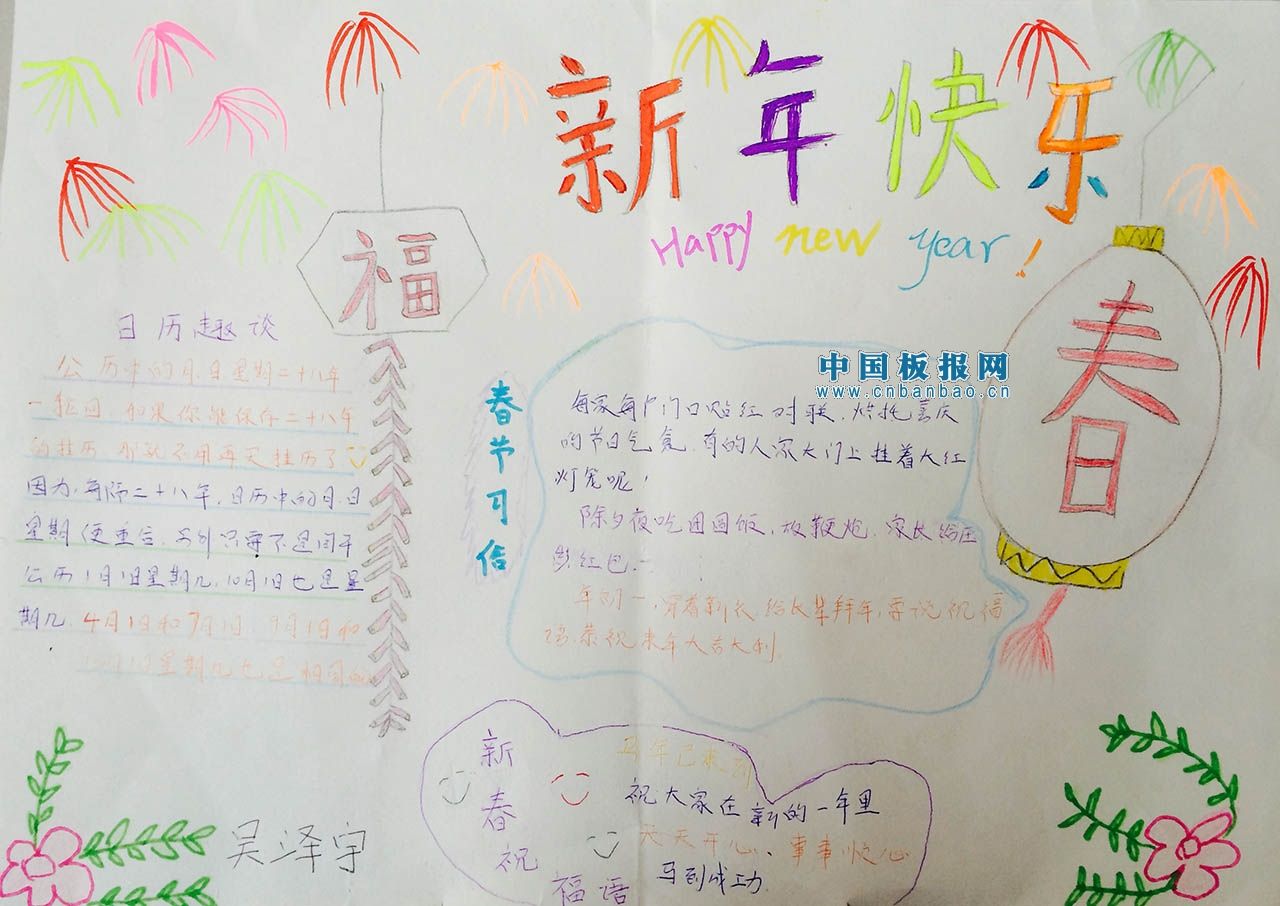 新年快乐
Happy new year!
福
春
中国板报网
www.cnbanbao.cn
日历趣谈
公历中的月.日星期二十八年
一轮回.如果你能保存二十八年
的挂历.那就不用再买挂历了
因为.每隔二十八年.日历中的月.日
星期便重合.另外只要不是闰年
公历1月1日星期几.10月1日也是星
期几.4月1日和7月1日.9月1日和
12月1日星期几也是相同的
春节习俗
每家每户门口贴红对联.烘托喜庆
的节日气氛.有的人家大门上挂着大红
灯笼呢!
除夕夜吃团圆饭,放鞭炮.家长给压
红包...
年初一,穿着新衣.给长辈拜年,要说祝福
语.恭祝来年大吉大利.
新春祝福语
马年已来
祝大家在新的一年里
天天开心、事事快心
马到成功.
吴泽宇